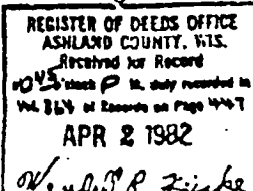 REGISTER OF DEEDS OFFICE
ASHLAND COUNTY, WIS.
Received for Record
o'clock P M, duly recorded in
Vol. 364 of Records on Page 447
APR 2 1982